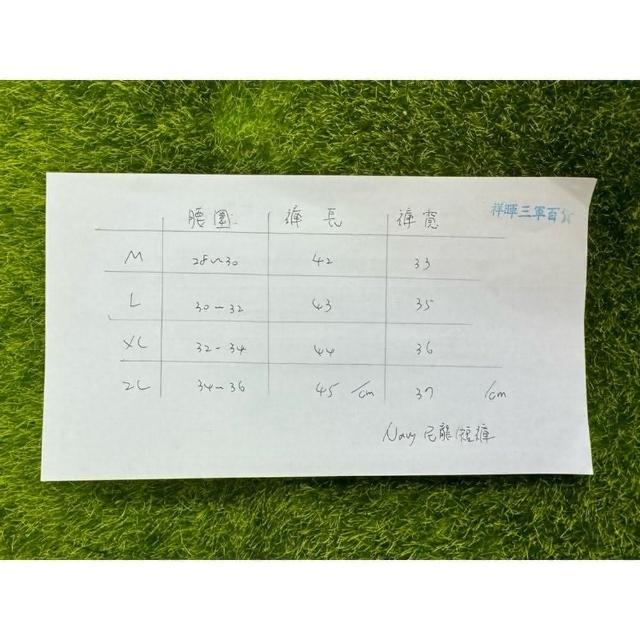 腰圍 褲長 褲寬 祥暉三軍百貨
M 28~30 42 33
L 30-32 43 35
XL 32-34 44 36
2L 34-36 45 /cm 37 /cm
Navy 尼龍短褲